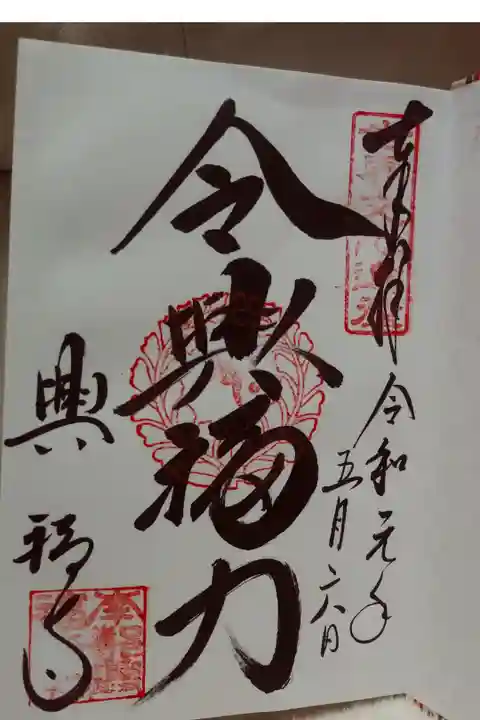 奉拝
令和元年
五月二八日
令興福力
興福寺